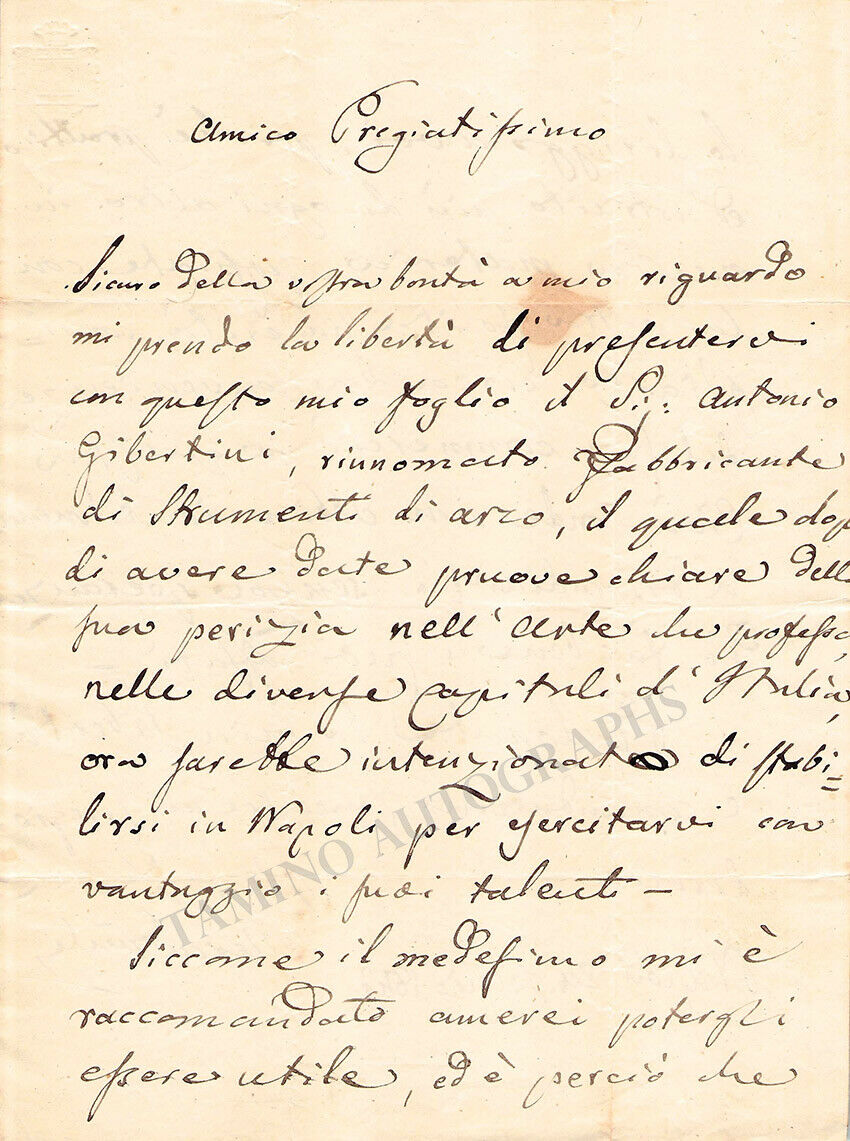 Amico Pregiatissimo
Sicuro della vostra bontà a mio riguardo
mi prendo la libertà di presentervi
con questo mio foglio il Sig: Antonio
Gibertini, rinnomato Fabbricante
di Strumenti di arco, il quale dop
di avere date pruove chiare dell
sua perizia nell'Arte che professa,
nelle diverse Capitali d'Italia,
ora sarebbe intenzionato di stabi=
lirsi in Napoli per esercitarvi con
vantaggio i suoi talenti —
Siccome il medesimo mi è
raccomandato amerei potergli
essere utile, ed è perciò che
TAMINO AUTOGRAPHS